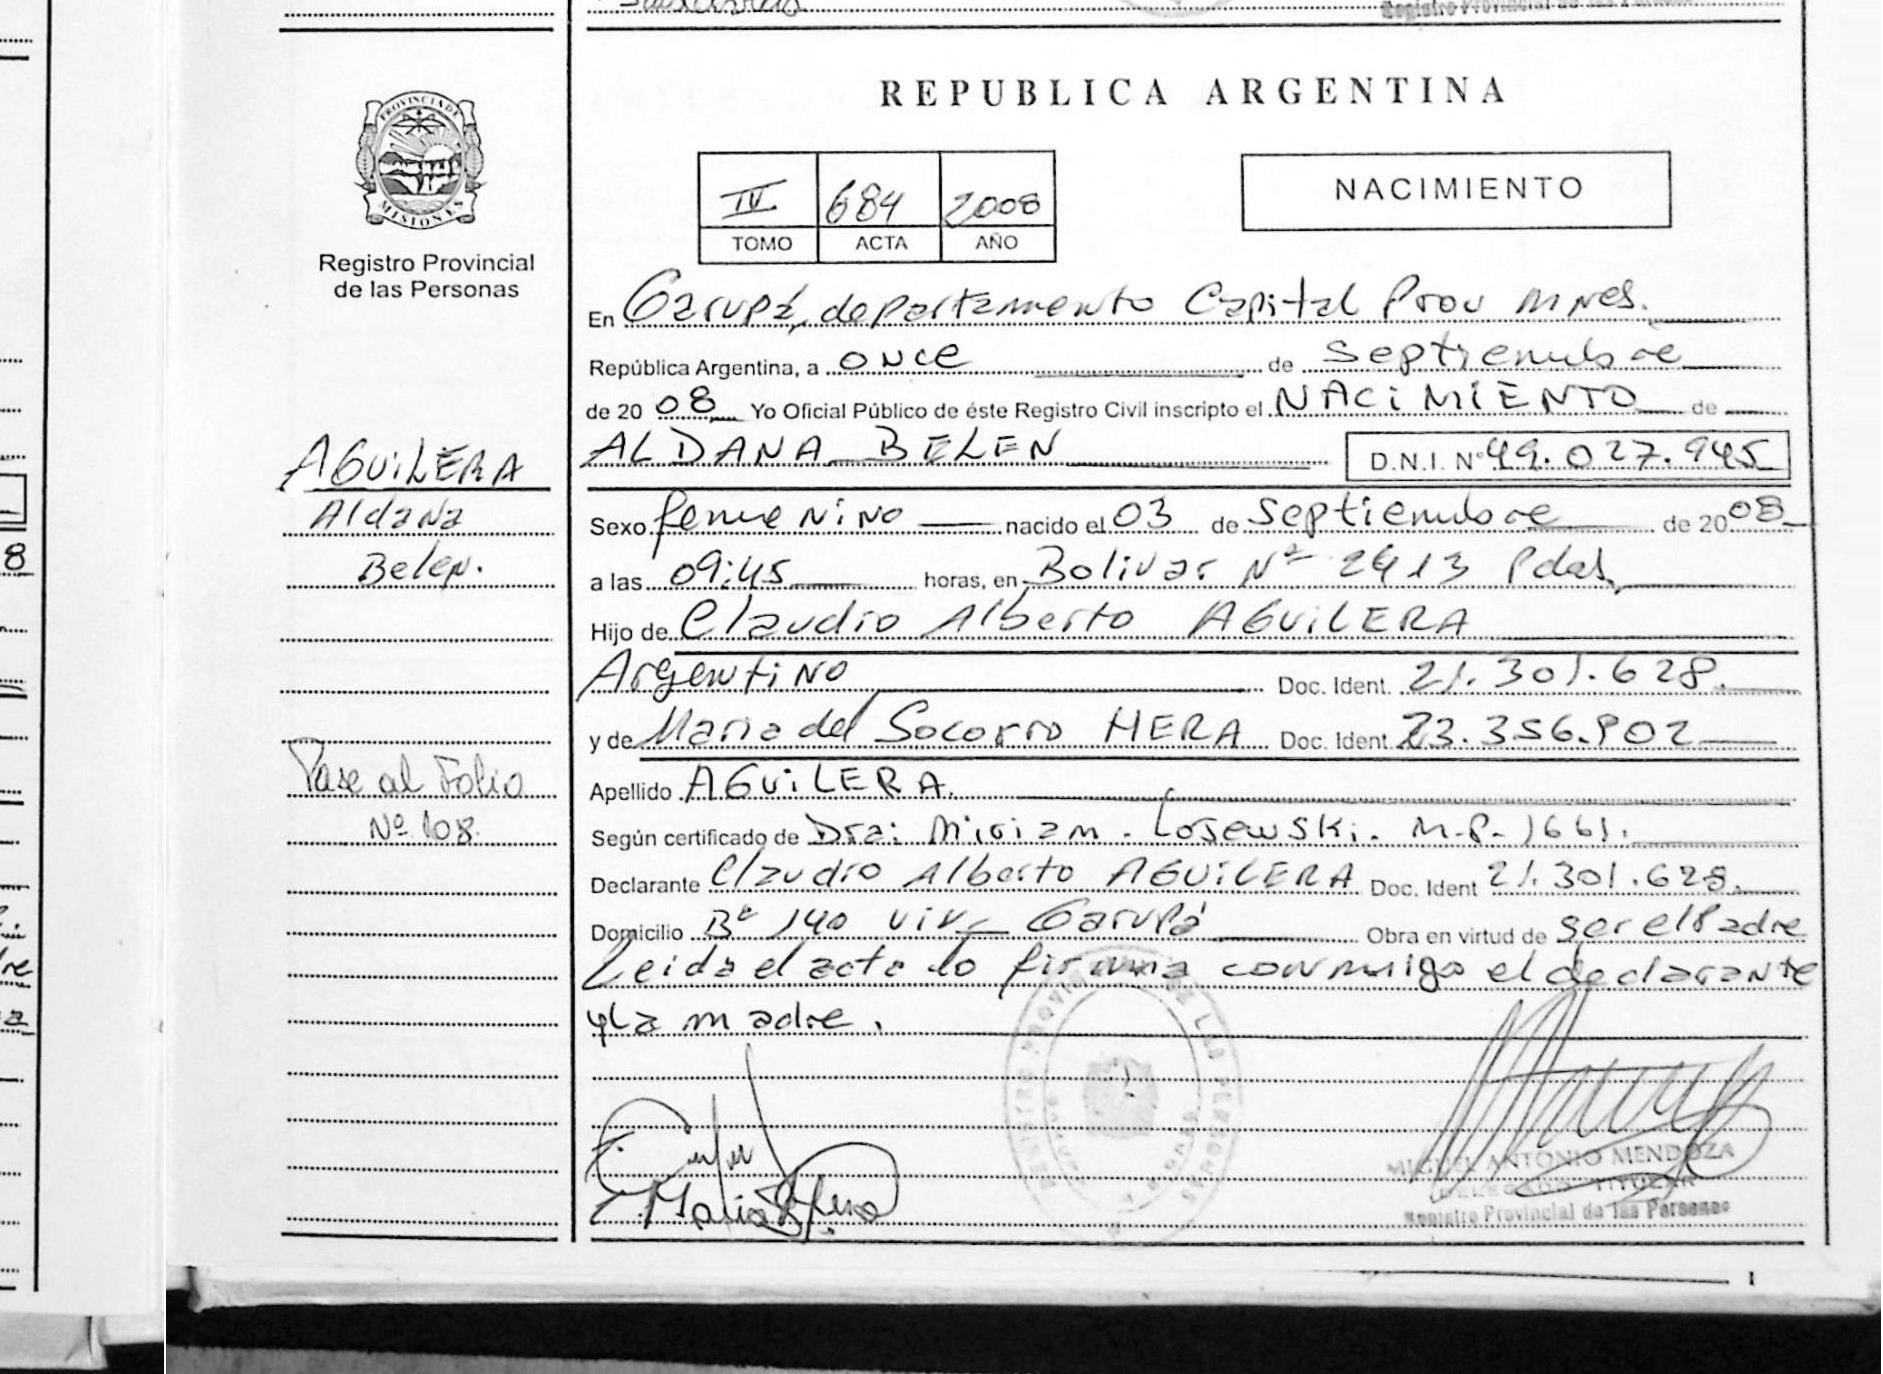 REPUBLICA ARGENTINA
PROVINCIA DE
MISIONES
Registro Provincial
de las Personas
IV 684 2008
TOMO ACTA AÑO
NACIMIENTO
En Garupá, departamento Capital Prov Mnes.
República Argentina, a once de septiembre
de 2008 Yo Oficial Público de éste Registro Civil inscripto el NACIMIENTO de
ALDANA BELEN D.N.I. Nº 49.027.945
Sexo femenino nacido el 03 de Septiembre de 2008
a las 09:45 horas, en Bolivar Nº 2413 Pdas,
Hijo de Claudio Alberto AGUILERA
Argentino Doc. Ident. 21.301.628.
y de Maria del Socorro MERA Doc. Ident. 23.356.902
Apellido AGUILERA.
Según certificado de Dra: Miriam. Losewski. M.P. 1661.
Declarante Claudio Alberto AGUILERA Doc. Ident 21.301.628.
Domicilio Bº 140 viv. Garupá Obra en virtud de ser el Padre
Leida el acta lo firma conmigo el declarante
y la madre.
AGUILERA
Aldana
Belen.
Pase al Folio
Nº 108.
MIGUEL ANTONIO MENDOZA
DELEGADO TITULAR
Registro Provincial de las Personas